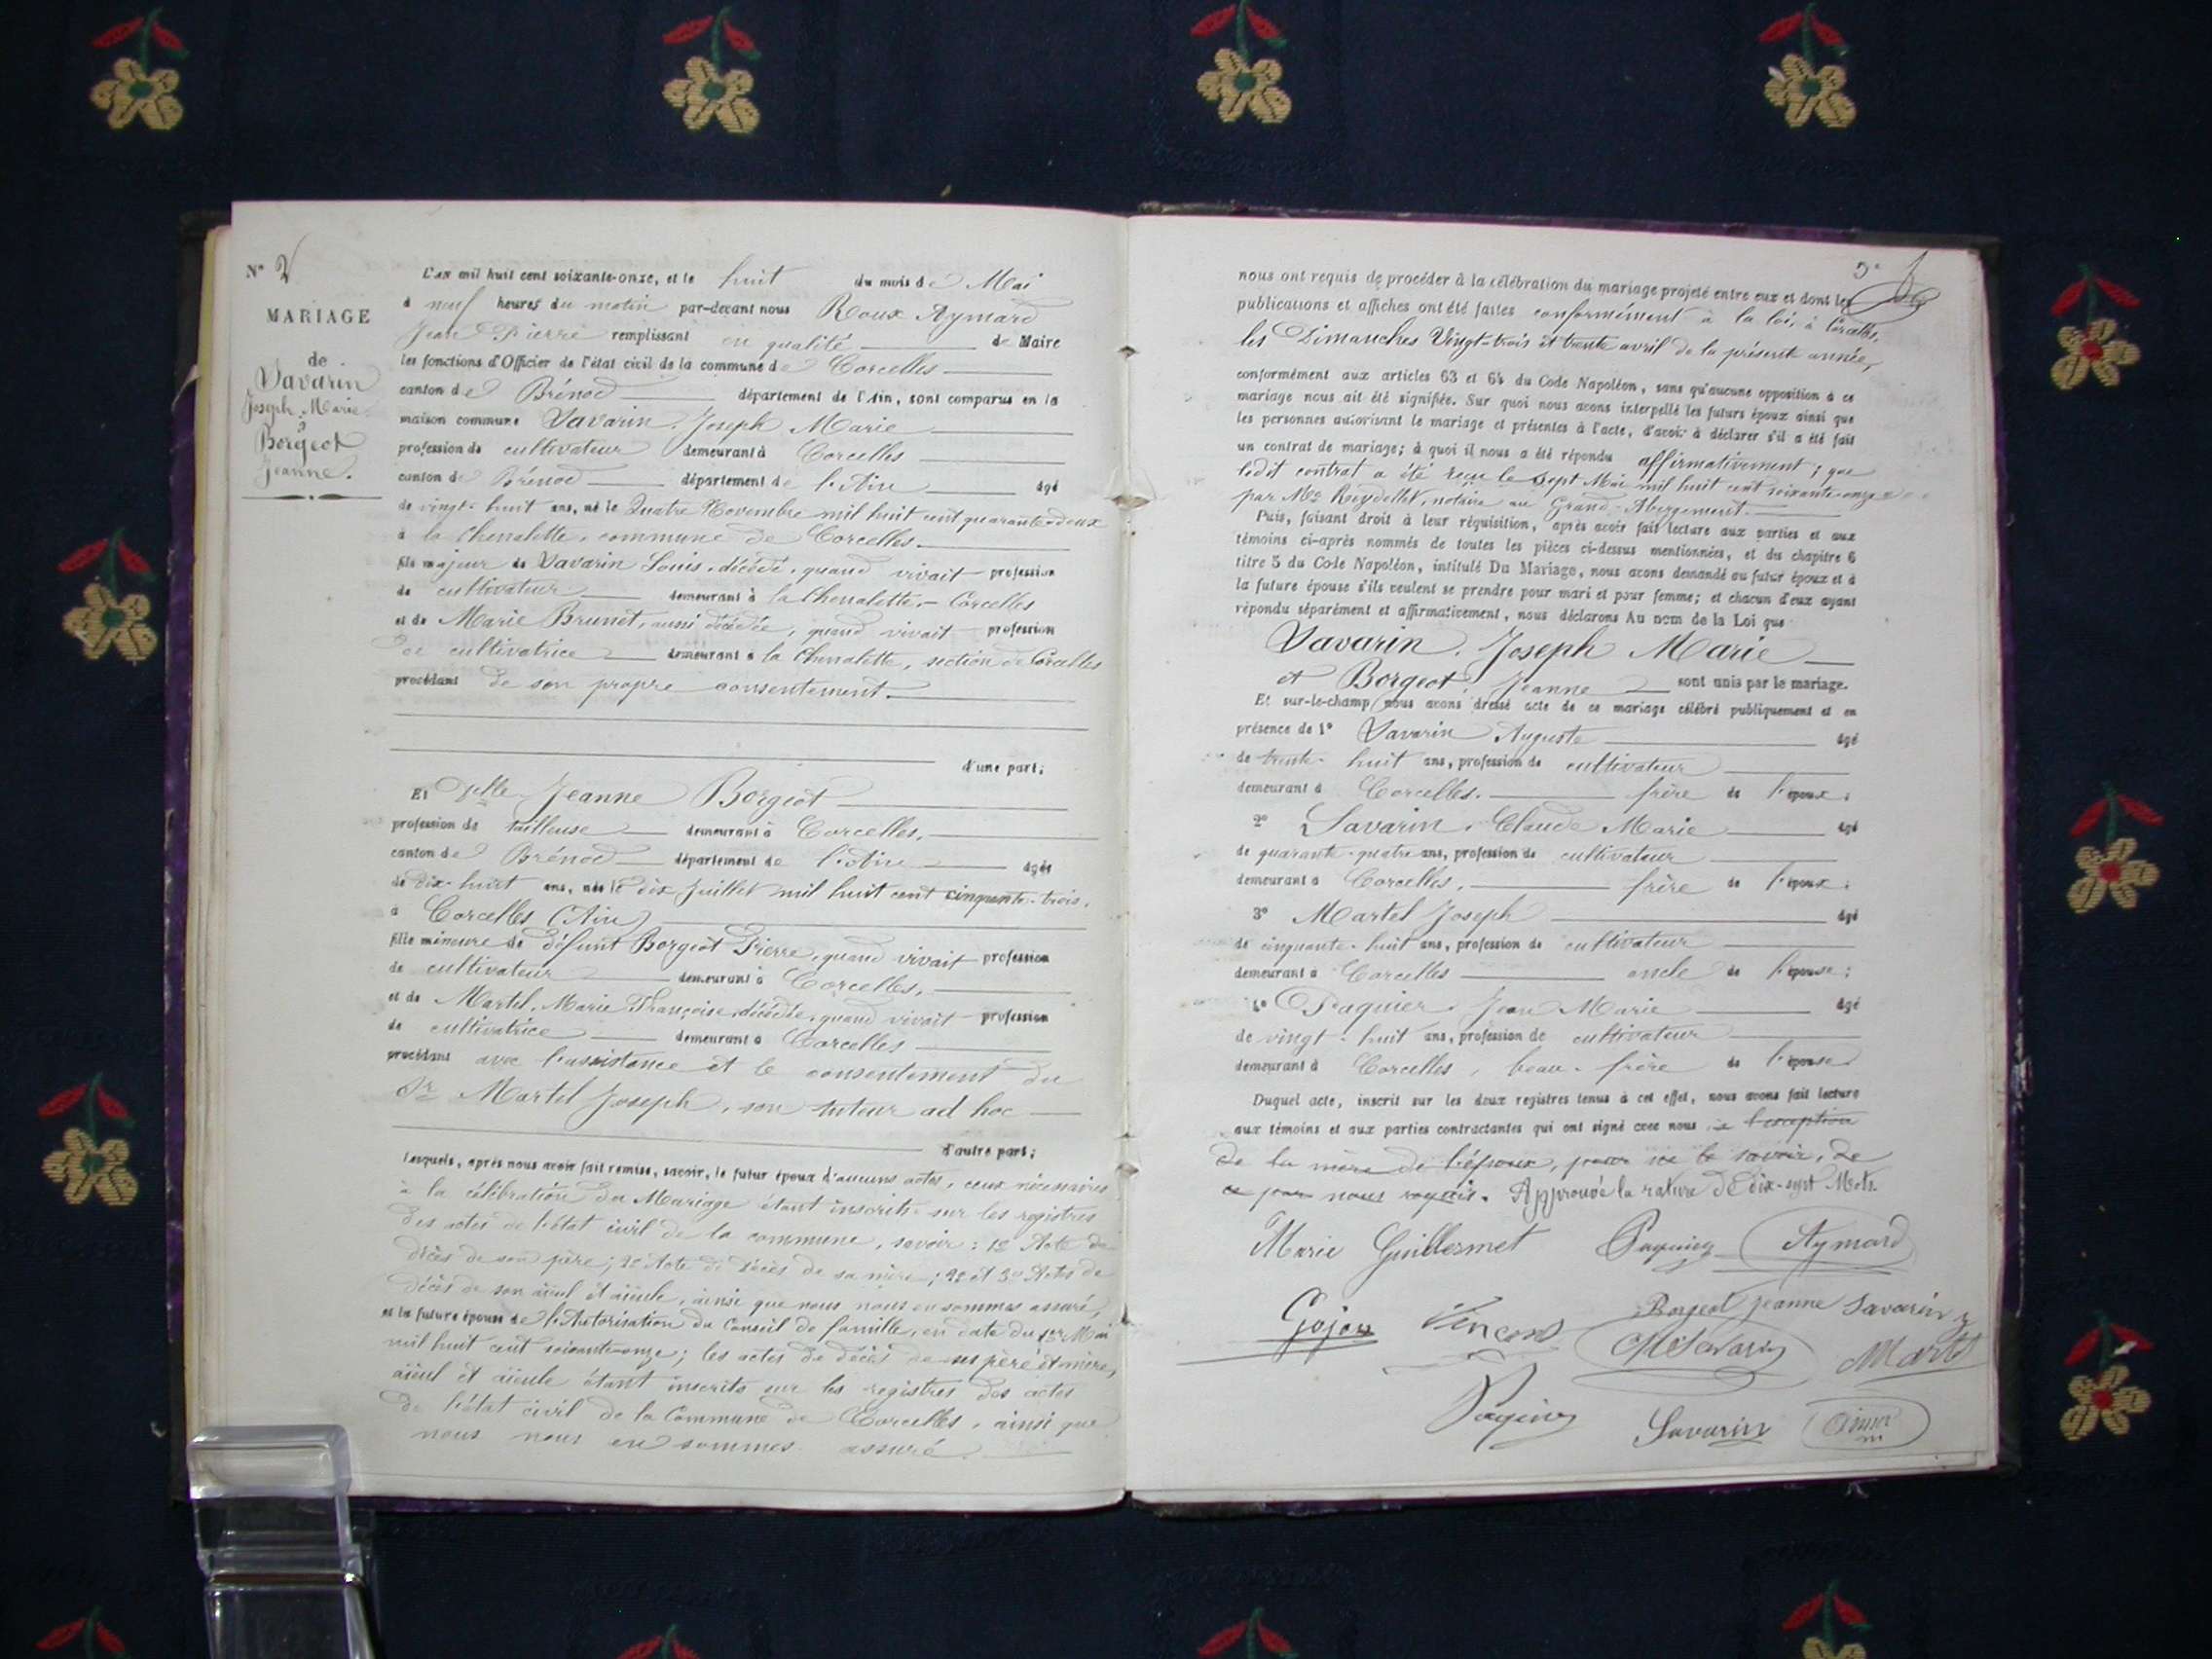 N° 2
MARIAGE
de
Savarin
Joseph Marie
&
Borgeot
Jeanne.
L'an mil huit cent soixante-onze, et le huit du mois de Mai
à neuf heures du matin par-devant nous Roux Aymard
Jean Pierre remplissant en qualité de Maire
les fonctions d'Officier de l'état civil de la commune de Corcelles
canton de Brénod département de l'Ain, sont comparus en la
maison commune Savarin, Joseph Marie
profession de cultivateur demeurant à Corcelles
canton de Brénod département de l'Ain âgé
de vingt-huit ans, né le Quatre Novembre mil huit cent quarante-deux
à la Cheralette, commune de Corcelles
fils majeur de Savarin Louis, décédé, quand vivait profession
de cultivateur demeurant à la Cheralette, - Corcelles
et de Marie Brunet, aussi décédée, quand vivait profession
de cultivatrice demeurant à la Cheralette, section de Corcelles
procédant de son propre consentement.
d'une part;
Et Delle Jeanne Borgeot
profession de tailleuse demeurant à Corcelles,
canton de Brénod département de l'Ain âgée
de dix-huit ans, née le dix Juillet mil huit cent cinquante-trois,
à Corcelles (Ain)
fille mineure de défunt Borgeot Pierre, quand vivait profession
de cultivateur demeurant à Corcelles,
et de Martel, Marie Françoise, décédée, quand vivait profession
de cultivatrice demeurant à Corcelles
procédant avec l'assistance et le consentement du
Sr Martel Joseph, son tuteur ad hoc
d'autre part;
Lesquels, après nous avoir fait remise, savoir, le futur époux d'aucuns actes, ceux nécessaires
à la célébration du Mariage étant inscrits sur les registres
des actes de l'état civil de la commune, savoir: 1° Acte de
décès de son père; 2° Acte de décès de sa mère; 2° et 3° Actes de
décès de son aïeul et aïeule, ainsi que nous nous en sommes assuré,
et la future épouse de l'Autorisation du Conseil de famille, en date du 1er Mai
mil huit cent soixante-onze; les actes de décès de ses père et mère,
aïeul et aïeule étant inscrits sur les registres des actes
de l'état civil de la Commune de Corcelles, ainsi que
nous nous en sommes assuré.
nous ont requis de procéder à la célébration du mariage projeté entre eux et dont les
publications et affiches ont été faites conformément à la loi, à Corcelles,
les Dimanches Vingt-trois et trente avril de la présente année,
conformément aux articles 63 et 64 du Code Napoléon, sans qu'aucune opposition à ce
mariage nous ait été signifiée. Sur quoi nous avons interpellé les futurs époux ainsi que
les personnes autorisant le mariage et présentes à l'acte, d'avoir à déclarer s'il a été fait
un contrat de mariage; à quoi il nous a été répondu affirmativement; que
ledit contrat a été reçu le Sept Mai mil huit cent soixante-onze
par Me Reydellet, notaire au Grand-Abergement.
Puis, faisant droit à leur réquisition, après avoir fait lecture aux parties et aux
témoins ci-après nommés de toutes les pièces ci-dessus mentionnées, et du chapitre 6
titre 5 du Code Napoléon, intitulé Du Mariage, nous avons demandé au futur époux et à
la future épouse s'ils veulent se prendre pour mari et pour femme; et chacun d'eux ayant
répondu séparément et affirmativement, nous déclarons Au nom de la Loi que
Savarin, Joseph Marie
et Borgeot, Jeanne sont unis par le mariage.
Et sur-le-champ nous avons dressé acte de ce mariage célébré publiquement et en
présence de 1° Savarin Auguste âgé
de trente-huit ans, profession de cultivateur
demeurant à Corcelles. frère de l'époux;
2° Savarin, Claude Marie âgé
de quarante-quatre ans, profession de cultivateur
demeurant à Corcelles, frère de l'époux;
3° Martel Joseph âgé
de cinquante-huit ans, profession de cultivateur
demeurant à Corcelles oncle de l'épouse;
4° Paquier, Jean Marie âgé
de vingt-huit ans, profession de cultivateur
demeurant à Corcelles, beau-frère de l'épouse
Duquel acte, inscrit sur les deux registres tenus à cet effet, nous avons fait lecture
aux témoins et aux parties contractantes qui ont signé avec nous à l'exception
de la mère de l'époux, pour ne le savoir, de
ce par nous requis. Approuvé la rature de dix-sept Mots.
Marie Guillermet Paquier Aymard
Gojon Vincent Borgeot Jeanne Savarin
CMSavarin Martel
Paquier Savarin